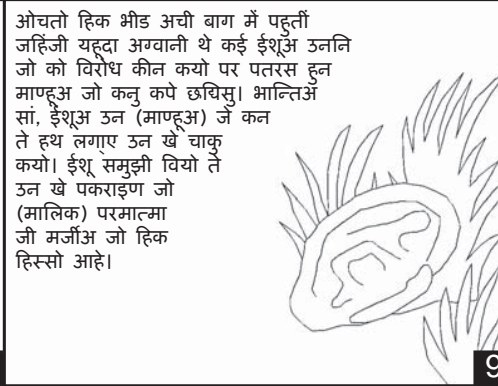 ओचतो हिक भीड अची बाग में पहुतीं
जहिंजी यहूदा अग्वानी थे कई ईशूअ उननि
जो को विरोध कीन कयो पर पतरस हुन
माण्हूअ जो कनु कपे छॾियिसु। भान्तिअ
सां, ईशूअ उन (माण्हूअ) जे कन
ते हथ लगा॒ए उन खे चाकु
कयो। ईशू समुझी वियो ते
उन खे पकराइण जो
(मालिक) परमात्मा
जी मर्जीअ जो हिक
हिस्सो आहे।
9